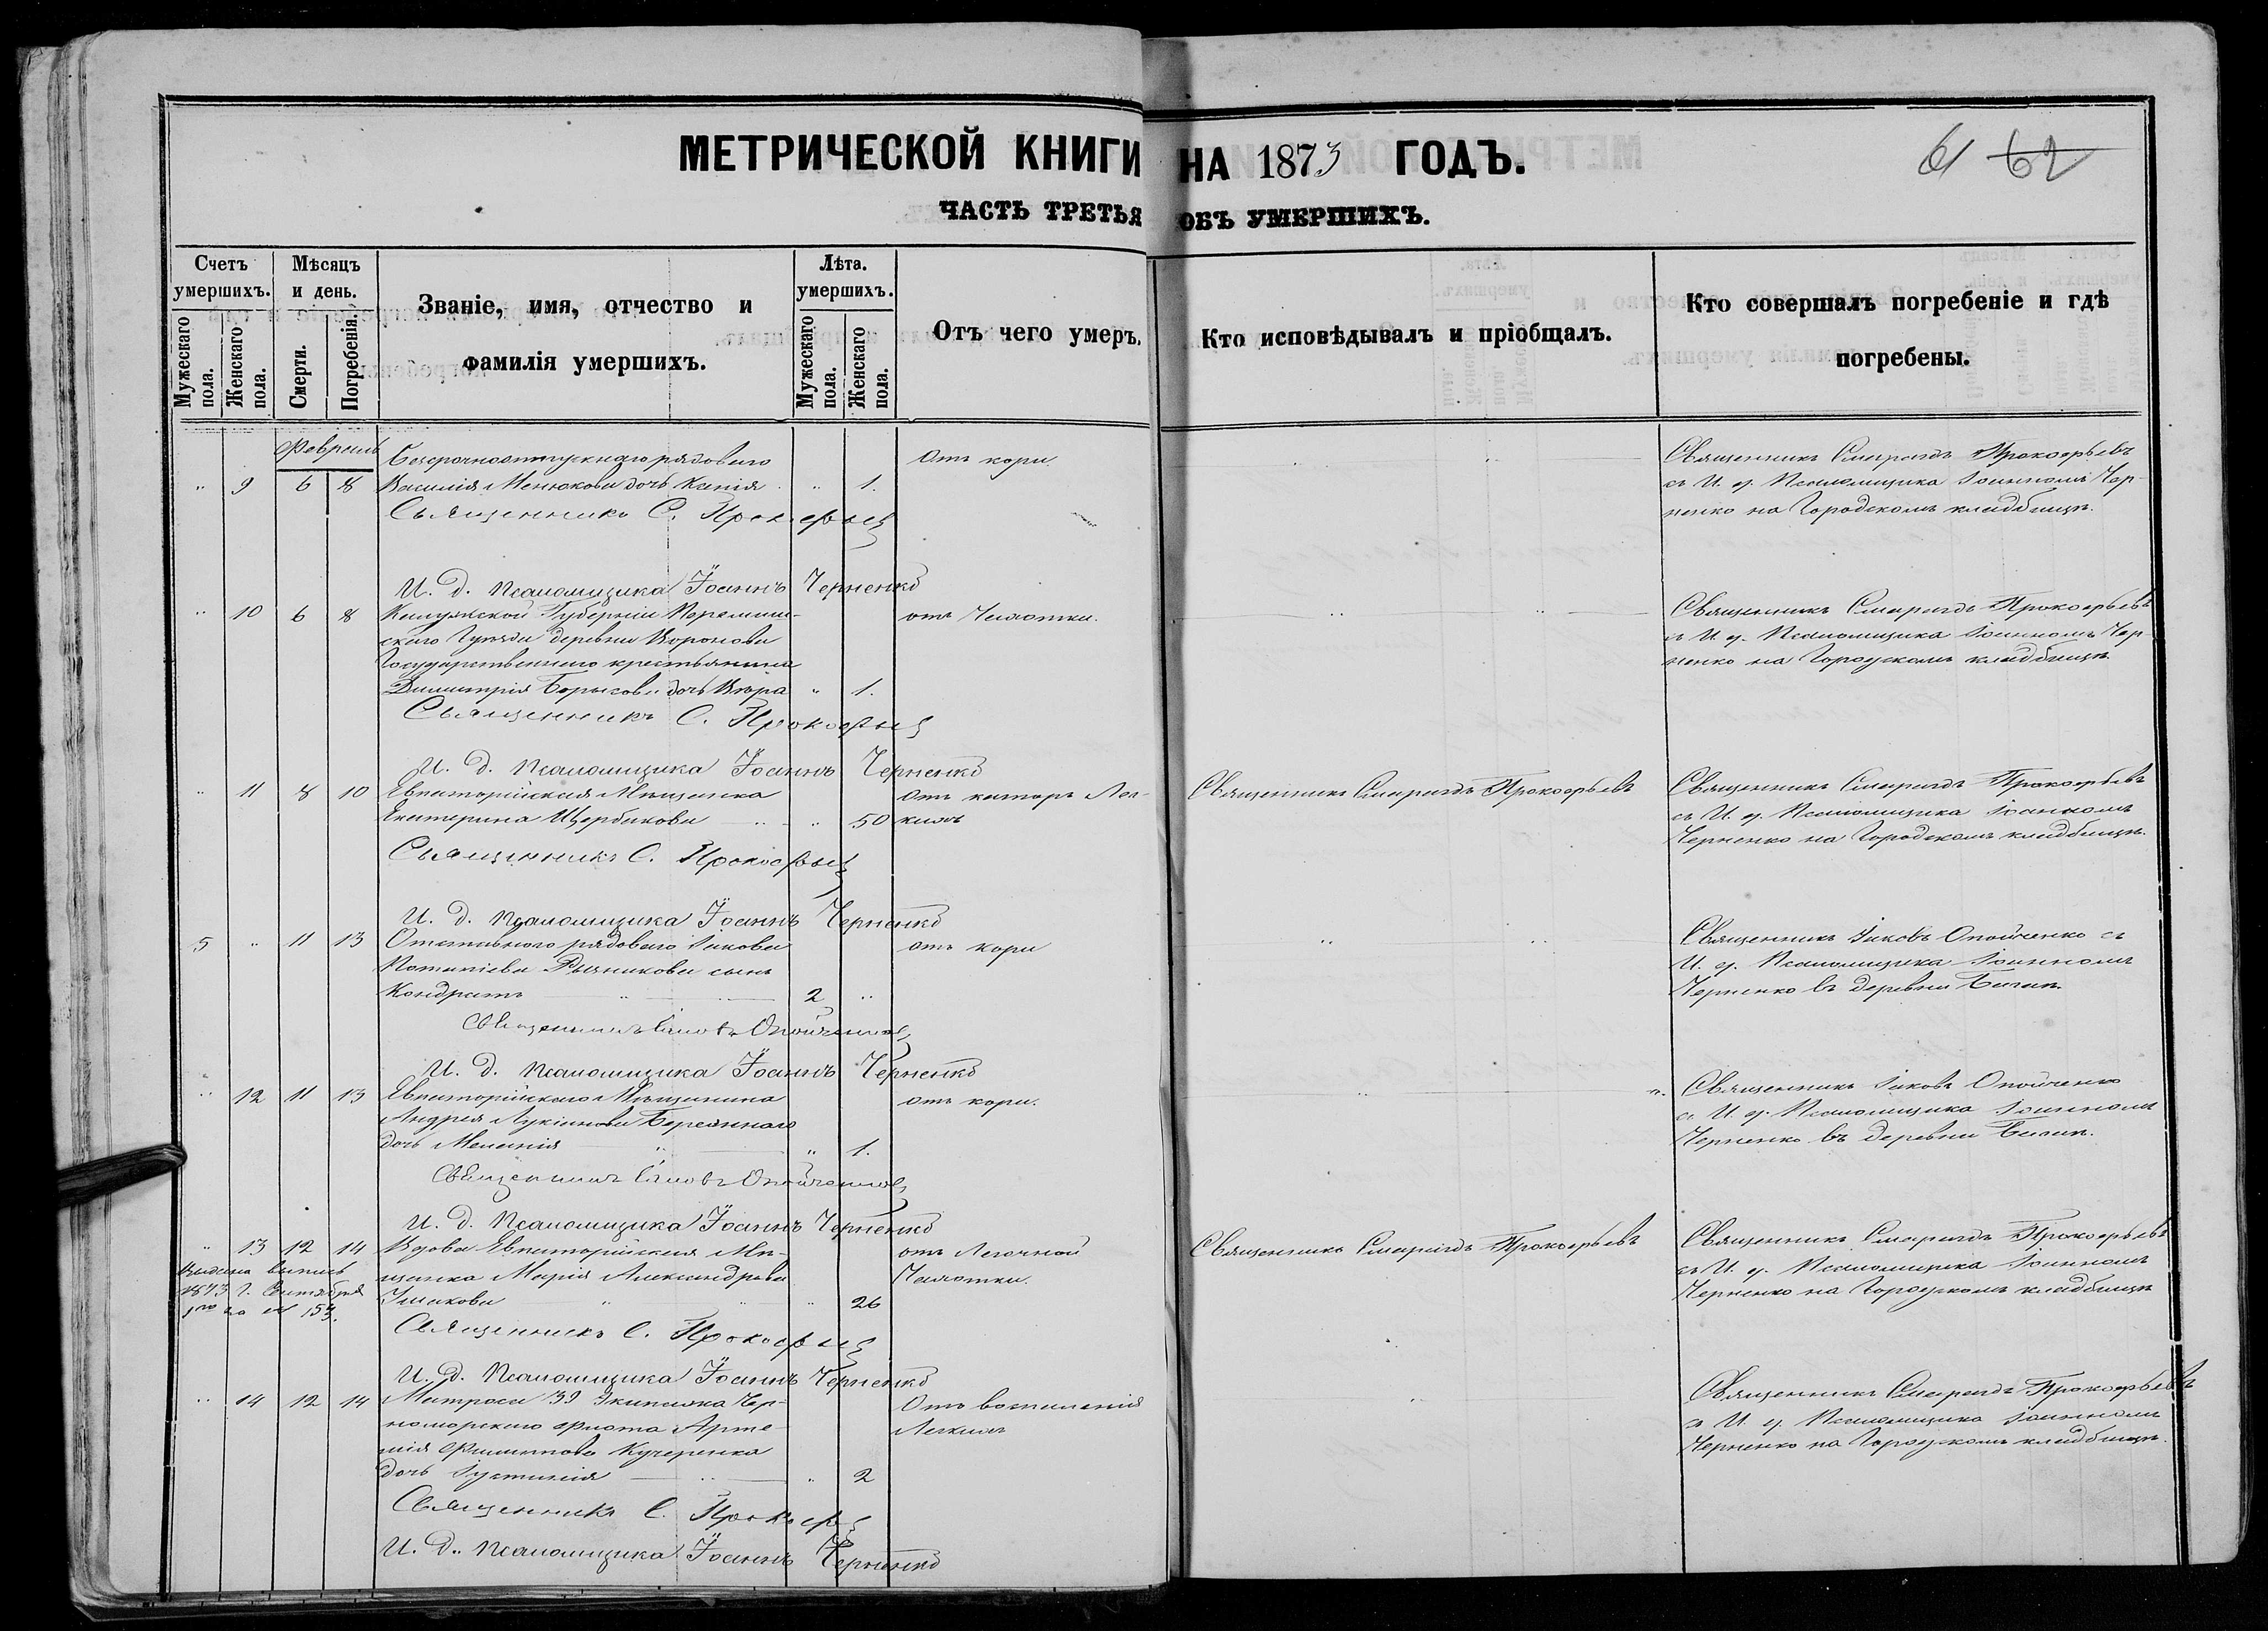 МЕТРИЧЕСКОЙ КНИГИ НА 1873 ГОДЪ.
61 62
ЧАСТЬ ТРЕТЬЯ ОБЪ УМЕРШИХЪ.
Счетъ умершихъ.
Мужескаго пола.
Женскаго пола.
Мѣсяцъ и день.
Смерти.
Погребенія.
Званіе, имя, отчество и фамилія умершихъ.
Лѣта. умершихъ.
Мужескаго пола.
Женскаго пола.
Отъ чего умеръ.
Кто исповѣдывалъ и пріобщалъ.
Кто совершалъ погребеніе и гдѣ погребены.
Февраль
Безсрочноотпускнаго рядоваго
Отъ кори.
Священникъ Смарагдъ Прокофьевъ
9 6 8 Василія Менюкова дочь Ксенія 1.
съ И. д. Псаломщика Іоанномъ Чер-
ненко на Городскомъ кладбищѣ.
Священникъ С. Прокофьев
И. д. псаломщика Іоаннъ Черненко
10 6 8 Калужской Губерніи Перемышль-
отъ Чахотки.
Священникъ Смарагдъ Прокофьевъ
скаго Уѣзда деревни Воронова
съ И. д. Псаломщика Іоанномъ Чер
Государственнаго крестьянина
ненко на Городскомъ кладбищѣ.
Димитрія Борисова дочь Вѣра 1.
Священникъ С. Прокофьев
И. д. псаломщика Іоаннъ Черненко
11 8 10 Евпаторійская Мѣщанка
Отъ катарр Лег-
Священникъ Смарагдъ Прокофьевъ
Священникъ Смарагдъ Прокофьевъ
Екатерина Щербакова 50
кихъ
съ И. д. Псаломщика Іоанномъ
Черненко на Городскомъ кладбищѣ.
Священникъ С. Прокофьев
И. д. псаломщика Іоаннъ Черненко
5 11 13 Отставного рядоваго Іакова
отъ кори
Священникъ Іаковъ Опойченко съ
Потапіева сынъ
И. д. Псаломщика Іоанномъ
Кондратъ 2
Черненко въ деревни
Священникъ Іаковъ Опойченко
И. д. псаломщика Іоаннъ Черненко
12 11 13 Евпаторійскаго Мѣщанина
отъ кори.
Священникъ Іаковъ Опойченко
Андрея Лукіанова
съ И. д. Псаломщика Іоанномъ
дочь Меланія 1.
Черненко въ деревни
Священникъ Іаковъ Опойченко
И. д. Псаломщика Іоаннъ Черненко
13 12 14 Вдова Евпаторійская Мѣ-
отъ Легочной
Священникъ Смарагдъ Прокофьевъ
Священникъ Смарагдъ Прокофьевъ
Выдана выпись
щанка Марія Александрова
Чахотки.
съ И. д. Псаломщика Іоанномъ
1873 г. Сентября
Ушакова 26
Черненко на Городскомъ кладбищѣ
1го за № 153.
Священникъ С. Прокофьев
И. д. Псаломщика Іоаннъ Черненко
14 12 14 Матроса 39 Экипажа Чер-
Отъ воспаленія
Священникъ Смарагдъ Прокофьевъ
номорскаго Флота Арте-
Легкихъ
съ И. д. Псаломщика Іоанномъ
мія Филиппова Кучеренка
Черненко на Городскомъ кладбищѣ.
дочь Іустинія 2
Священникъ С. Прокофьев
И. д. псаломщика Іоаннъ Черненко